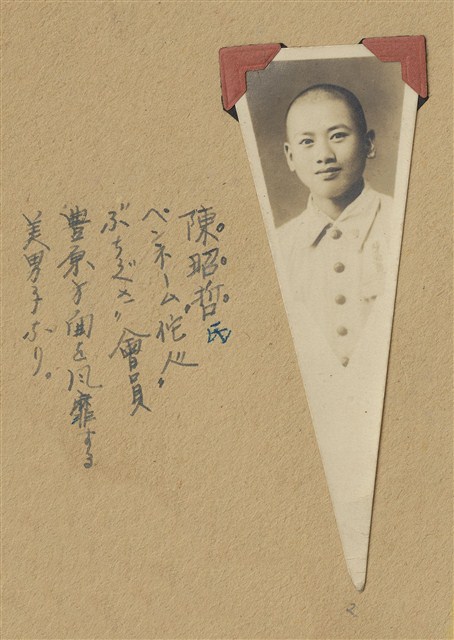 陳昭哲氏
ペンネーム"佗人"
ぶちぐさ"會員
豊原方面を風靡する
美男子なり。
2